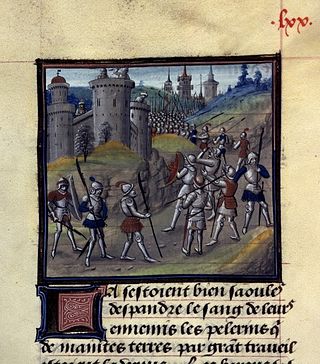 lxx.
Ja sestoient bien saoule
despandre le sang de leurs
ennemis les pelerins q̄
de maintes terres par grāt traueil